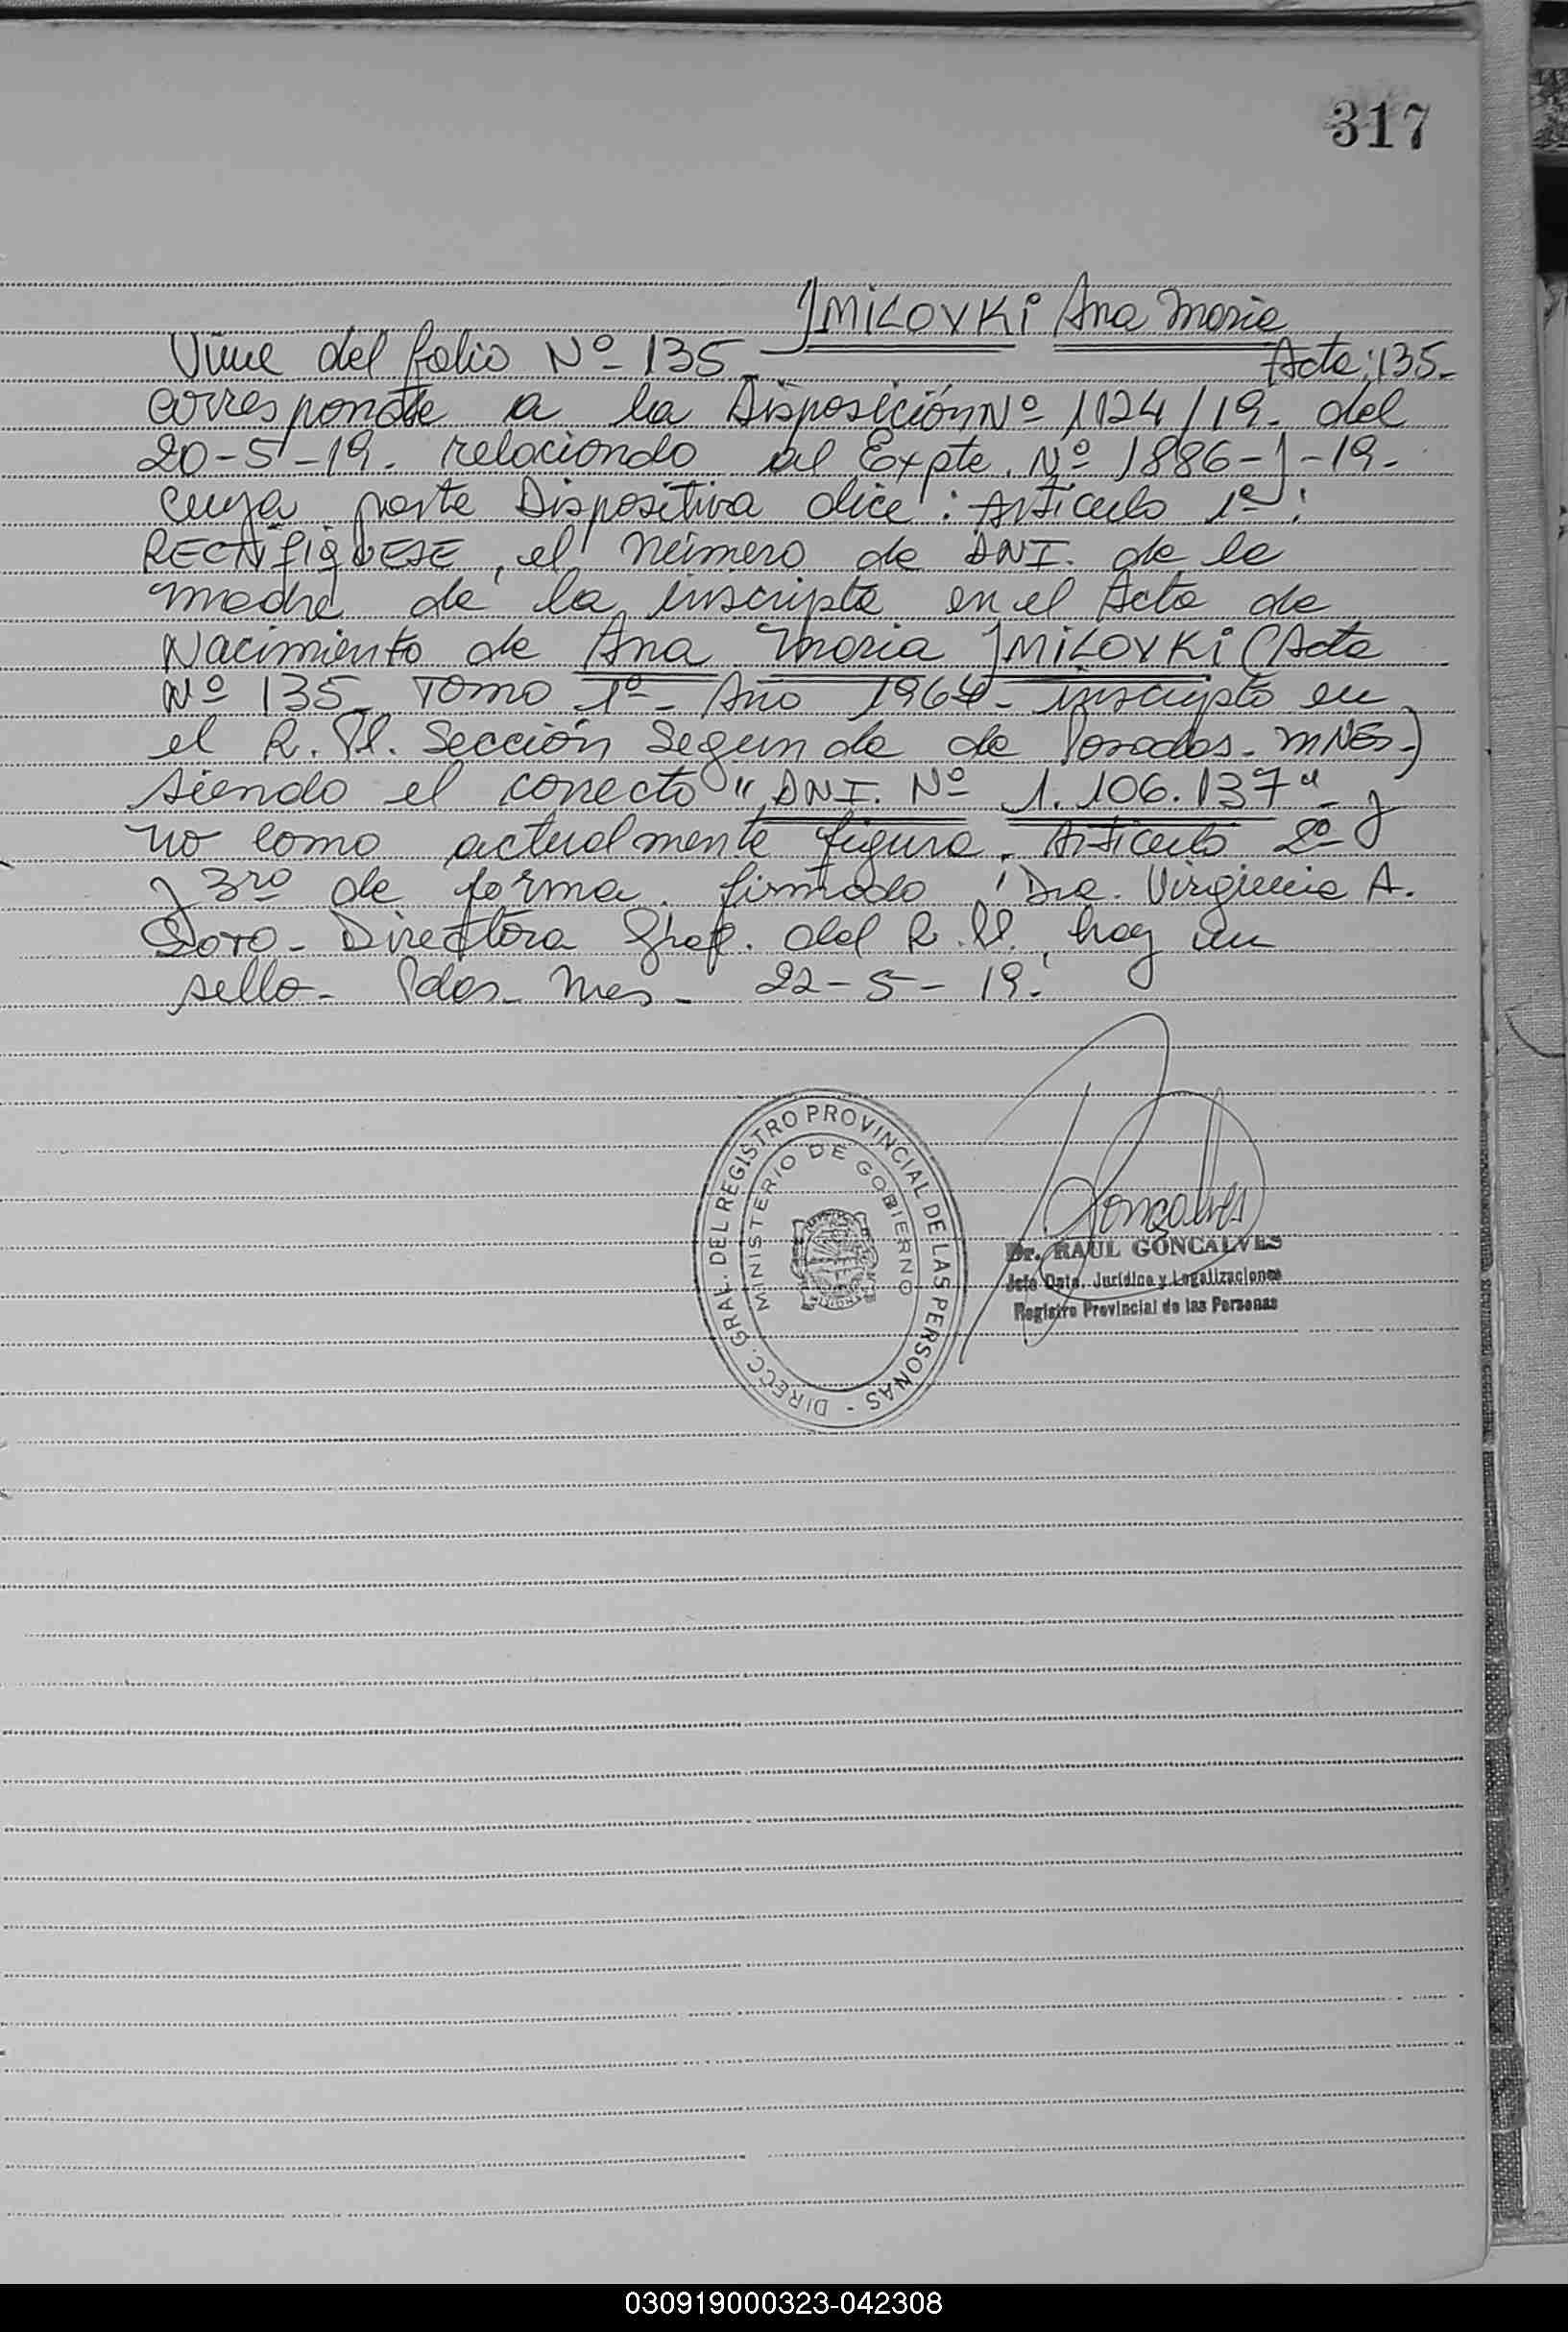 317
JMILOVKi Ana Maria
Viene del folio Nº 135 -
Acta: 135.-
corresponde a la Disposición Nº 1124/19. del
20-5-19. relaciondo al Expte. Nº 1886-J-19-
cuya parte Dispositiva dice: Artículo 1º:
RECTIFIQUESE, el número de DNI. de la
madre de la inscripta en el Acta de
Nacimiento de Ana Maria JMILOVKi (Acta
Nº 135 - Tomo 1º - Año 1964 - inscripto en
el R. Pl. Sección Segunda de Posadas - MNES.)
siendo el correcto "DNI. Nº 1.106.137" - y
no como actualmente figura. Artículo 2º y
y 3ro de forma. firmado: Dra. Virginia A.
Soto - Directora Gral. del R. Pl. hay un
sello - Pdas. Mes - 22-5-19.
DIRECC. GRAL. DEL REGISTRO PROVINCIAL DE LAS PERSONAS -
MINISTERIO DE GOBIERNO
MISIONES
Goncalves
Dr. RAUL GONCALVES
Jefe Dpto. Jurídico y Legalizaciones
Registro Provincial de las Personas
030919000323-042308